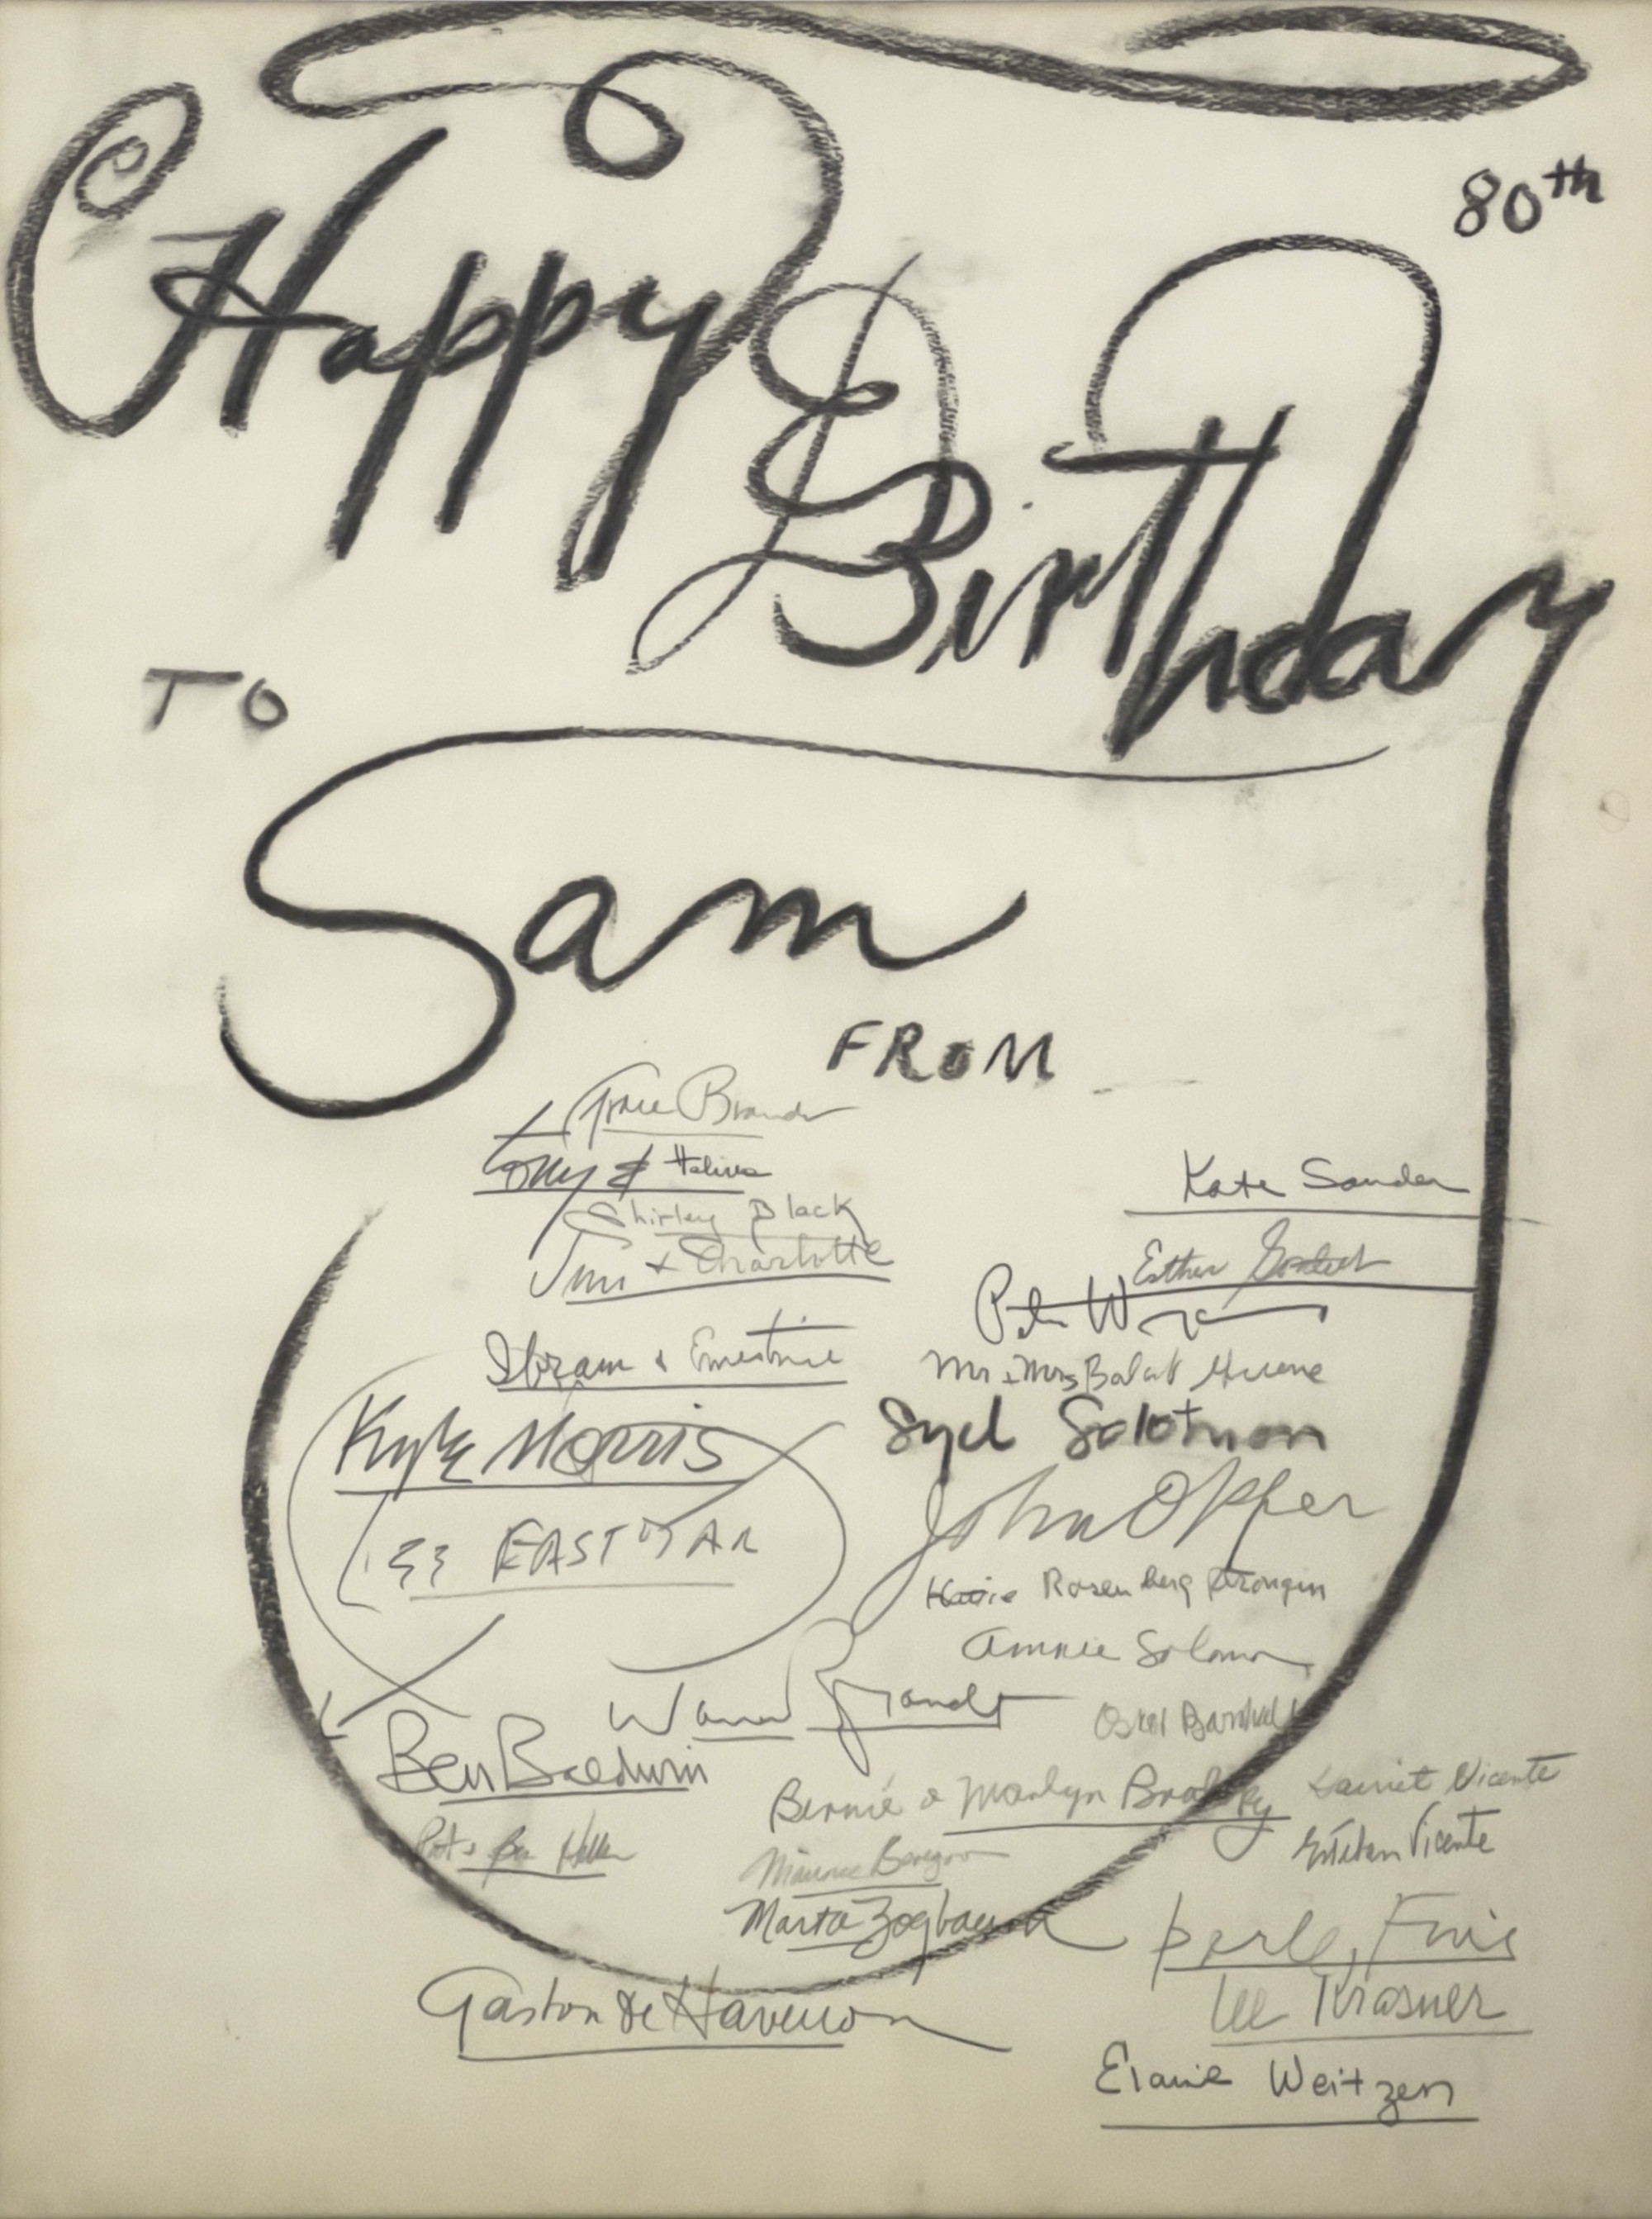 Happy
80th
Birthday
TO
Sam
FROM
Grace Brandt
Tony & Halina
Shirley Black
Jim + Charlotte
Ibram & Ernestine
Kyle Morris
Ben Baldwin
Pat + Ben Heller
Gaston de Havenon
Kate Sander
Esther
Peter
Mr + Mrs
Syd Solomon
John Opper
Rosenberg Strongin
Annie Solomon
Warren Brandt
Bernie & Marilyn Brodsky
Harriet Vicente
Esteban Vicente
Maurice Berezov
Marta Zogbaum
Perle Fine
Lee Krasner
Elaine Weitzen